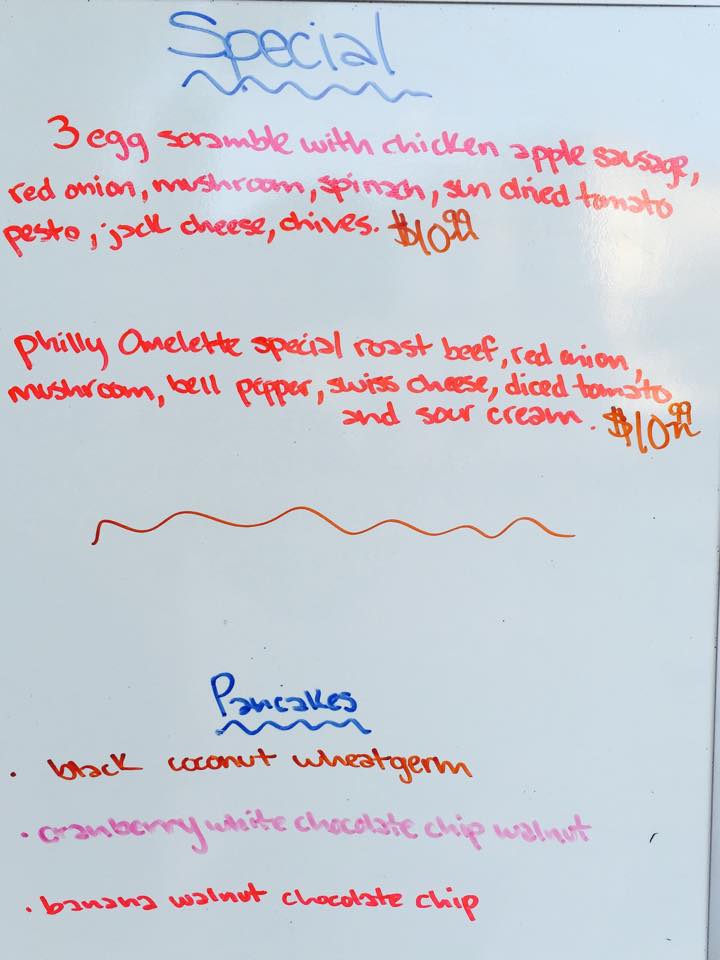 Special
3 egg scramble with chicken apple sausage,
red onion, mushroom, spinach, sun dried tomato
pesto, jack cheese, chives. $10.99
philly Omelette special roast beef, red onion,
mushroom, bell pepper, swiss cheese, diced tomato
and sour cream. $10.99
Pancakes
• black coconut wheatgerm
• cranberry white chocolate chip walnut
• banana walnut chocolate chip